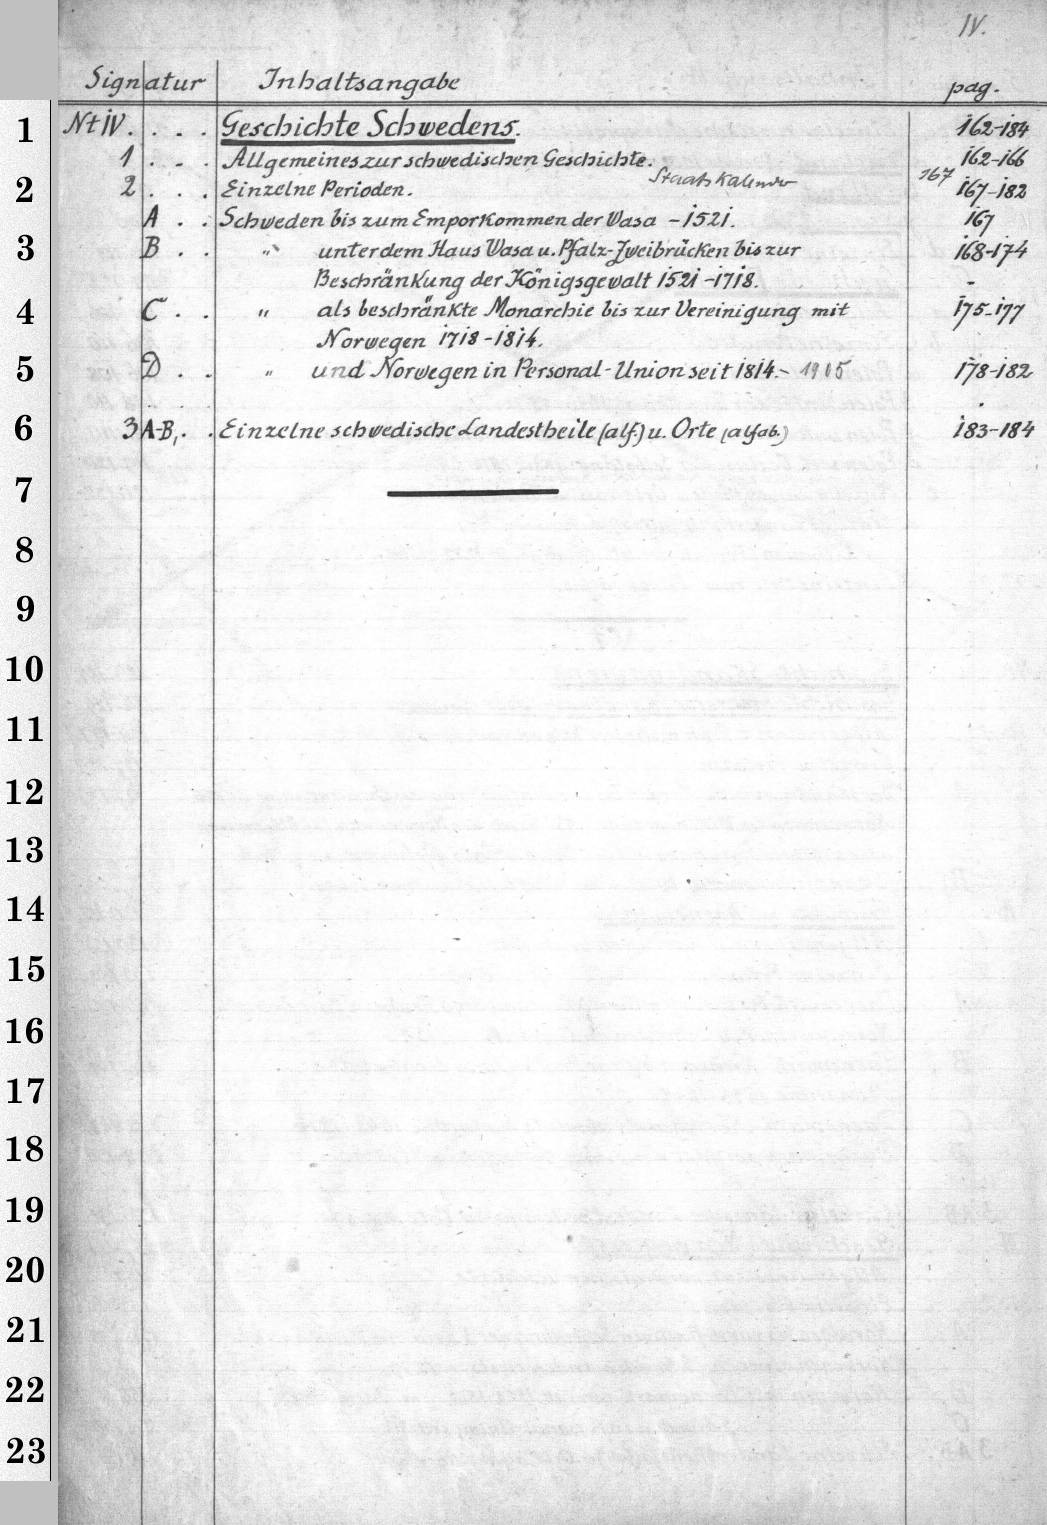 IV.
Signatur Inhaltsangabe pag.
1 Nt IV. . . . Geschichte Schwedens. 162-184
1 . . . Allgemeines zur schwedischen Geschichte. 162-166
Staatskalender 167
2 2 . . . Einzelne Perioden. 167-182
A . . Schweden bis zum Emporkommen der Wasa - 1521. 167
3 B . . " unter dem Haus Wasa u. Pfalz-Zweibrücken bis zur 168-174
Beschränkung der Königsgewalt 1521-1718. -
4 C . . " als beschränkte Monarchie bis zur Vereinigung mit 175-177
Norwegen 1718-1814.
5 D . . " und Norwegen in Personal-Union seit 1814.- 1905 178-182
6 3 A-B, . . Einzelne schwedische Landestheile (alf.) u. Orte (alfab.) 183-184
7
8
9
10
11
12
13
14
15
16
17
18
19
20
21
22
23